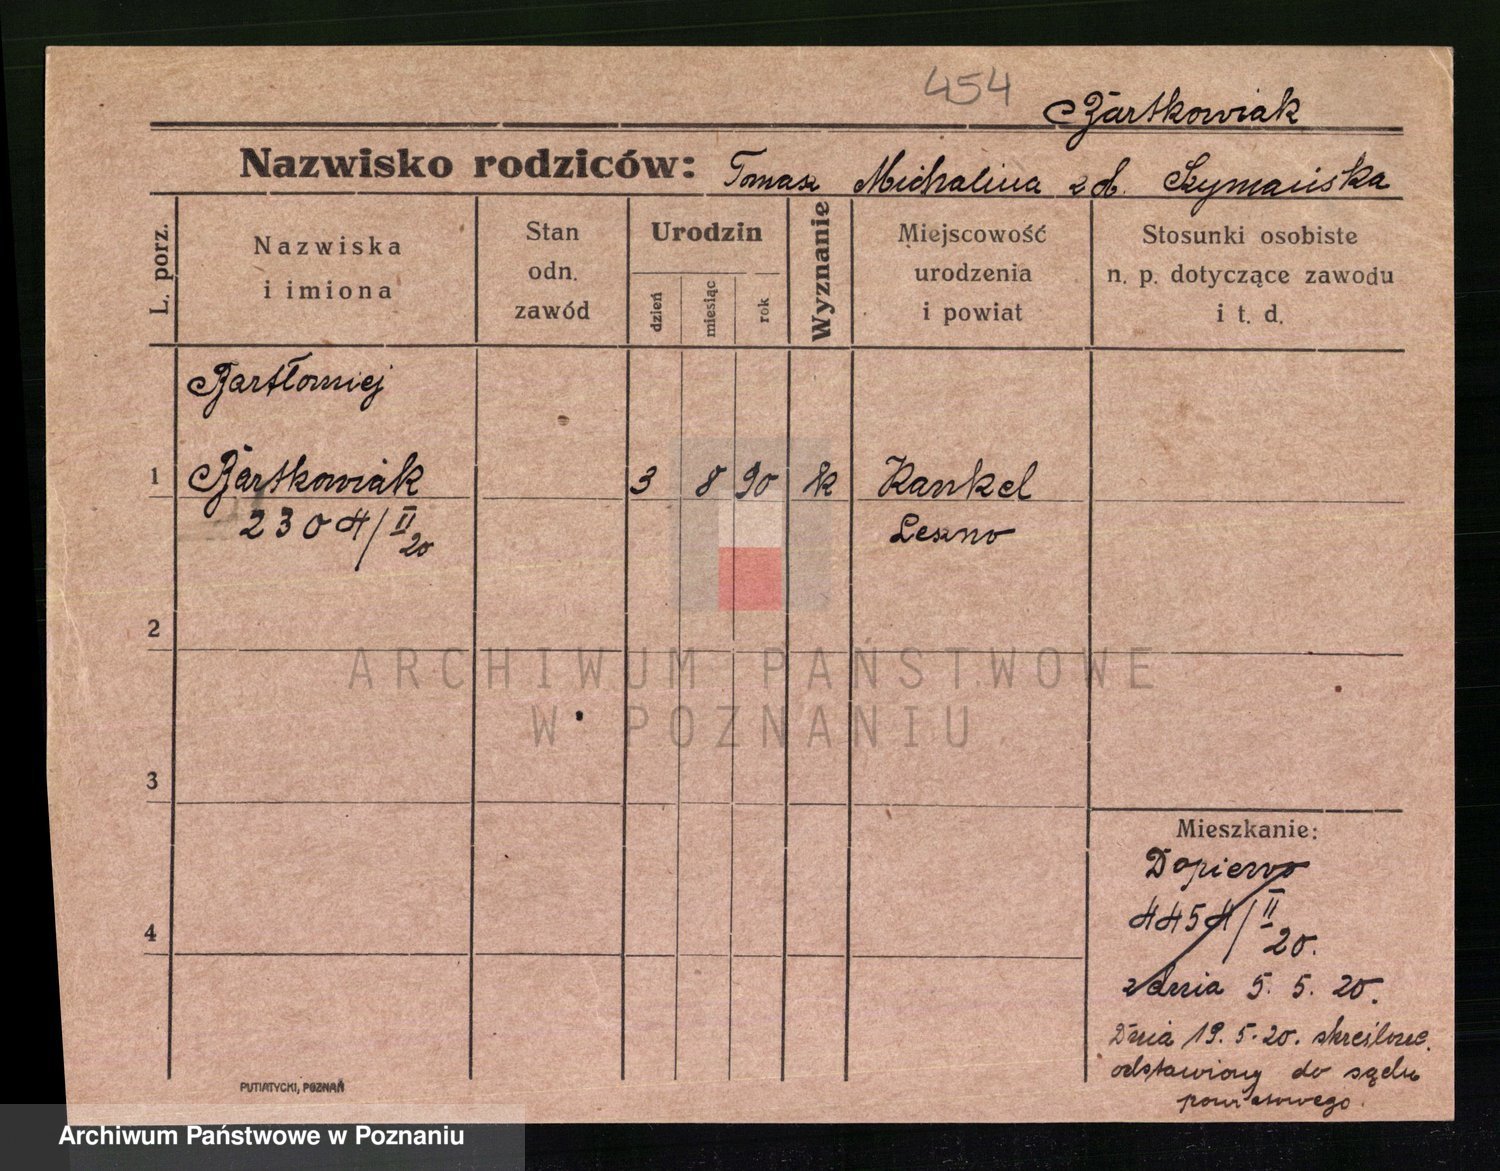 454
Bartkowiak
Nazwisko rodziców: Tomasz Michalina z d. Szymańska
L. porz.
Nazwiska
i imiona
Stan
odn.
zawód
Urodzin
dzień
miesiąc
rok
Wyznanie
Miejscowość
urodzenia
i powiat
Stosunki osobiste
n. p. dotyczące zawodu
i t. d.
Bartłomiej
1 Bartkowiak 3 8 90 k Kankel
2304/II 20 Leszno
2
ARCHIWUM PAŃSTWOWE
W POZNANIU
3
Mieszkanie:
Dopiewo
4454/II 20.
4
z dnia 5. 5. 20.
Dnia 19. 5. 20. skreślono.
odstawiony do sądu
powiatowego.
PUTIATYCKI, POZNAŃ
Archiwum Państwowe w Poznaniu